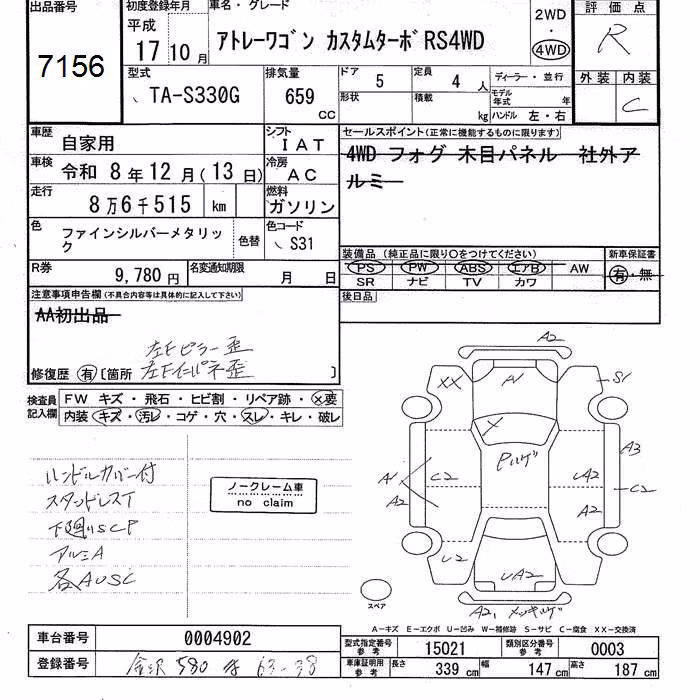 出品番号
7156
初度登録年月
平成
17 10 月
車名・グレード
アトレーワゴン カスタムターボRS4WD
2WD
・
4WD
評価点
R
外装 内装
C
型式
TA-S330G
排気量
659
CC
ドア 5
形状
定員 4 人
積載 kg
ディーラー・並行
モデル年式 年
ハンドル 左・右
車歴
自家用
シフト
IAT
セールスポイント(正常に機能するものに限ります)
4WD フォグ 木目パネル 社外ア
ルミ
車検
令和 8年12月(13日)
冷房
AC
走行
8万6千515 km
燃料
ガソリン
色
ファインシルバーメタリッ
ク
色替
色コード
S31
装備品(純正品に限り〇をつけてください)
PS PW ABS エアB AW
SR ナビ TV カワ
新車保証書
有・無
R券
9,780 円
名変通知期限
月 日
後日品
注意事項申告欄(不具合内容等は具体的に記入して下さい)
AA初出品
左Fピラー歪
修復歴 有 〔箇所 左Fインパネ歪 〕
検査員
記入欄
FW キズ・飛石・ヒビ割・リペア跡・X要
内装・キズ・汚レ・コゲ・穴・スレ・キレ・破レ
ハンドルカバー付
スタッドレスT
下廻りSCP
アルミA
各AUSC
ノークレーム車
no claim
A2
XX
A1
S1
X
Pルゲ
A1
A2
C2
UA2
A2
A3
C2
U2
UA2
A2, メッキハゲ
スペア
A-キズ E-エクボ U-凹み W-補修跡 S-サビ C-腐食 XX-交換済
車台番号
0004902
登録番号
金沢 580 63-38
型式指定番号
参考
15021
類別区分番号
参考
0003
車庫証明用
参考
長さ 339 cm
幅 147 cm
高さ 187 cm